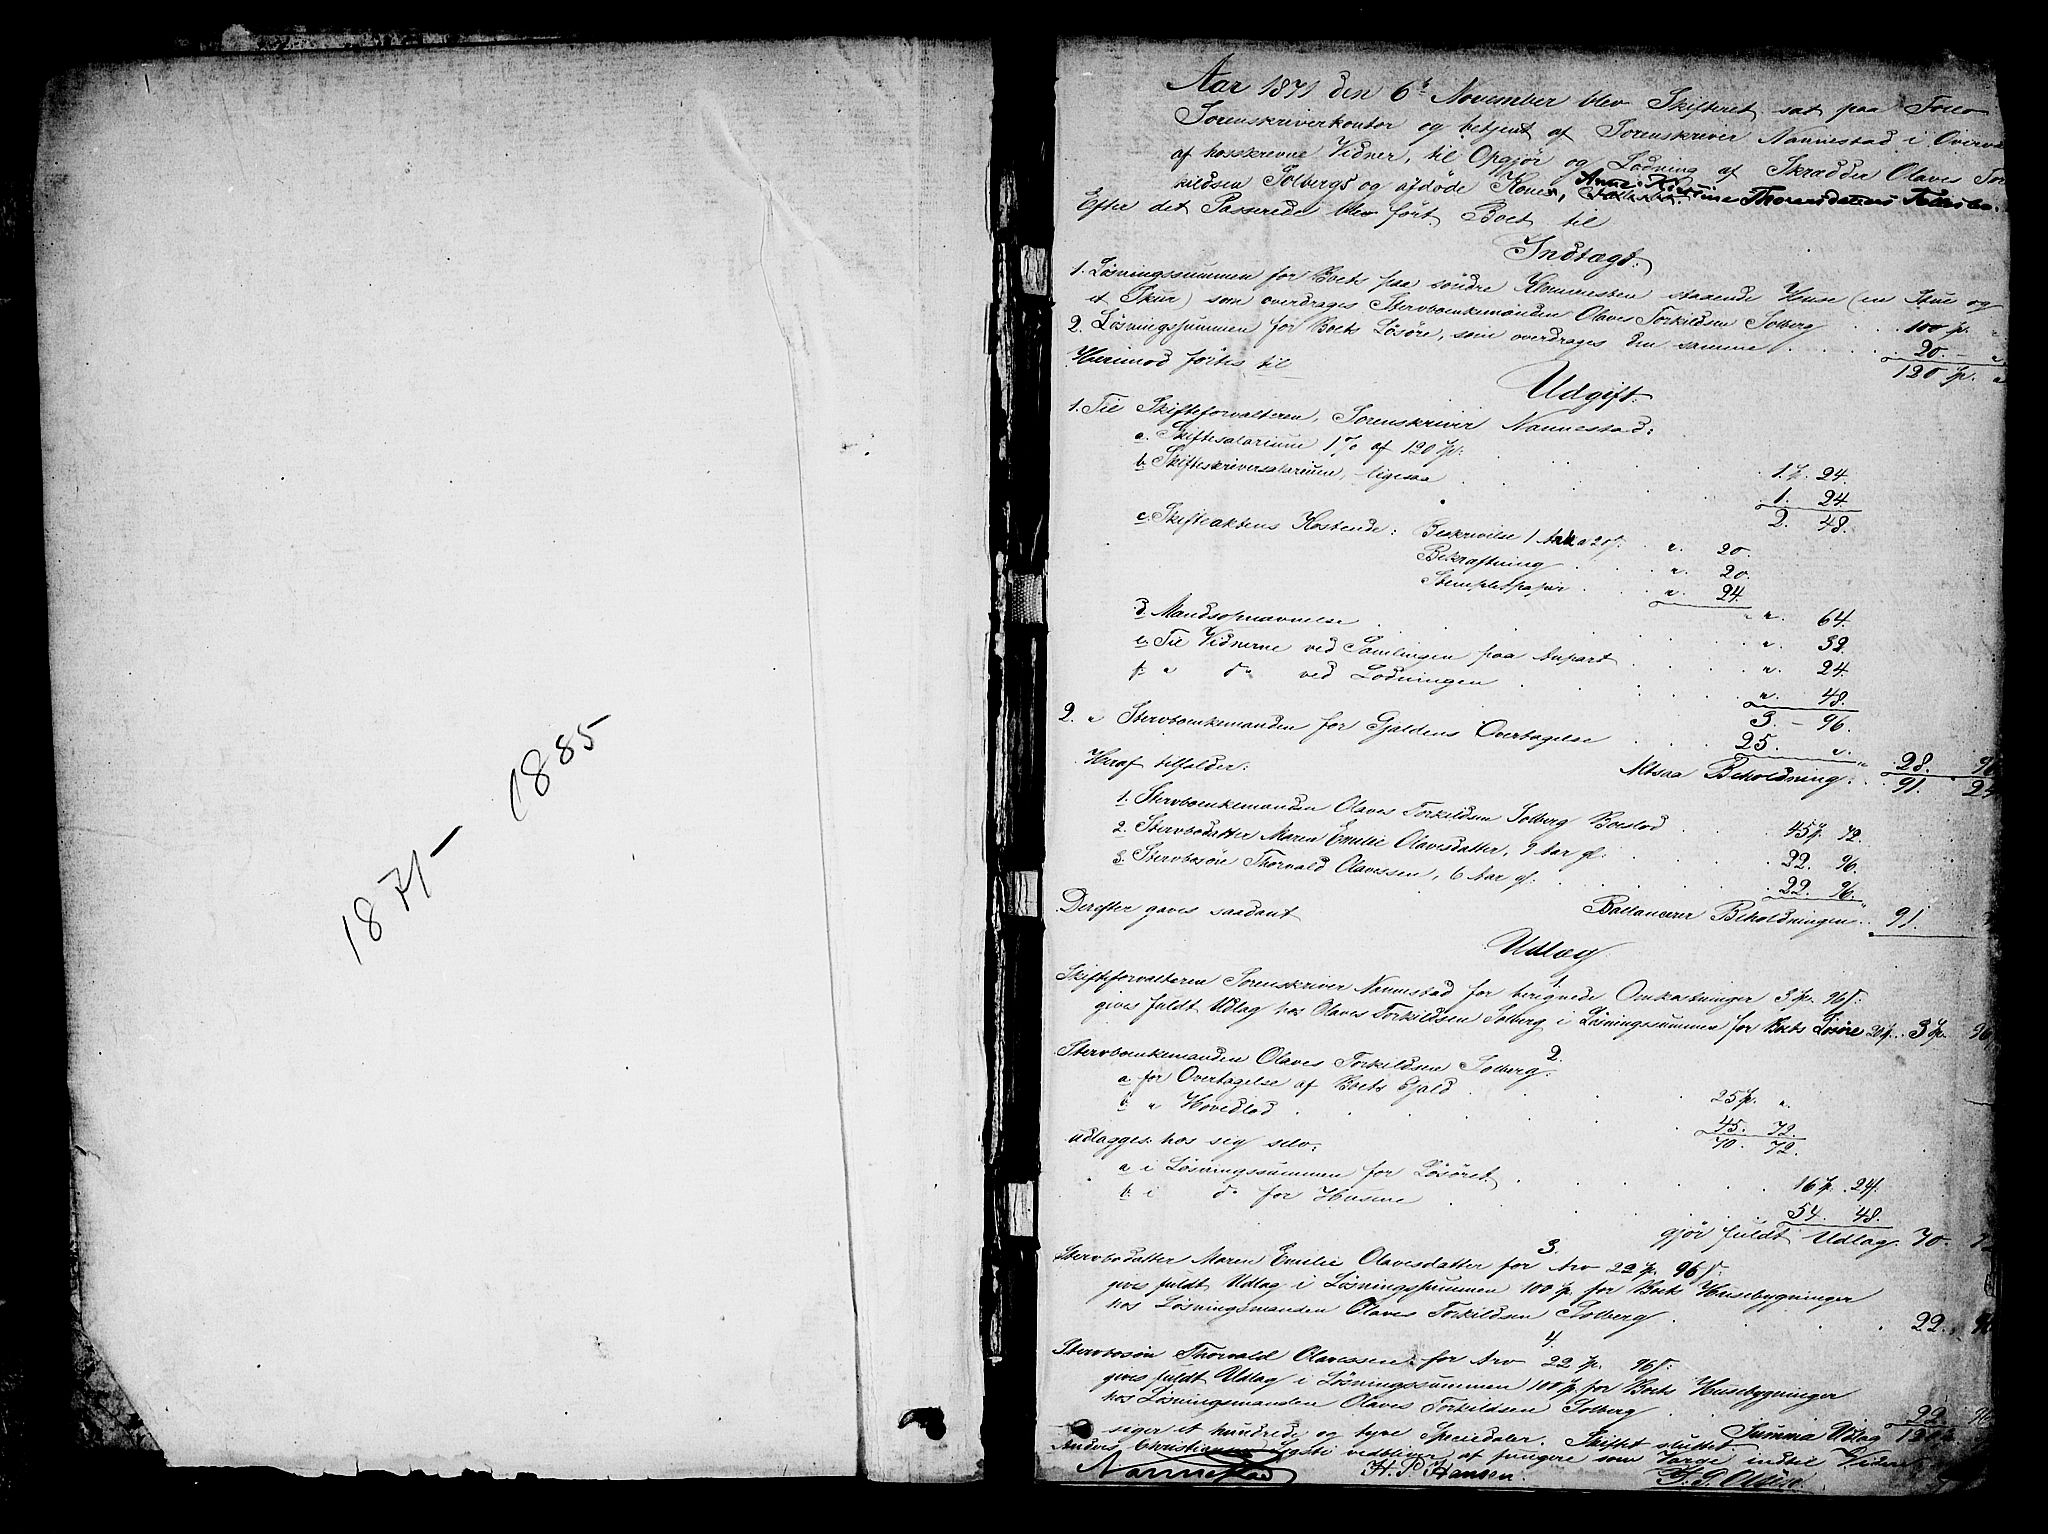 1871 - 1885
Aar 1871 den 6t November blev Skifteret sat paa Follo
Sorenskriverkontor og betjent af Sorenskriver Nannestad i Overvær
af hosskrevne Vidner, til Opgjør og Lodning af Skrædder Olaves Tor
kildsen Solbergs og afdøde Kones, Anne Kirstine Thorersdatters Fællesbo.
Efter det Passerede blev ført Boet til
Indtægt:
1. Løsningssummen for Boets paa søndre staaende Huse (en Stue og
et Skur) som overdrages Stervboenkemanden Olaves Torkildsen Solberg . . 100 Sp. "
2. Løsningssummen for Boets Løsøre, som overdrages den samme . . . . 20. - "
120 Sp. "
Herimod førtes til
Udgift:
1. Til Skifteforvalteren, Sorenskriver Nannestad:
a. Skiftesalarium 1% af 120 Sp. . . . 1 Sp. 24.
b. Skifteskriversalarium, ligesaa . . . 1. 24.
2. 48.
c. Skifteaktens Kostende: Beskrivelse 1 Ark a 20 s. . . ". 20.
Bekræftning . . . ". 20.
Stemplet papir . . . ". 24.
". 64.
d. Mandsopnævnelse . . . ". 32.
e. Til Vidnerne ved Samlingen paa Anpart . . . ". 24.
f. " do ved Lodningen . . . ". 48.
3. - 96.
2. " Stervboenkemanden for Gjældens Overtagelse . . . 25. ". 28. 96
Altsaa Beholdning: . . 91. 24
Heraf tilfalder:
1. Stervboenkemanden Olaves Torkildsen Solberg Boeslod . . 45 Sp. 72.
2. Stervbodatter Maren Emilie Olavesdatter, 9 Aar gl. . . 22. 96.
3. Stervbosøn Thorvald Olavessen, 6 Aar gl. . . . 22. 96.
Ballancerer Beholdningen . . 91.
Derefter gaves saadant
Udlæg
1.
Skifteforvalteren Sorenskriver Nannestad for beregnede Omkostninger 3 Sp. 96 s.
gives fuldt Udlæg hos Olaves Torkildsen Solberg i Løsningssummen for Boets Løsøre 20 Sp. . 3 Sp. 96
2.
Stervboenkemanden Olaves Torkildsen Solberg:
a. for Overtagelse af Boets Gjæld . . . 25 Sp. ".
b. " Hovedlod . . . 45. 72.
70. 72.
udlægges hos sig selv:
a. i Løsningssummen for Løsøret . . . 16 Sp. 24 s.
b. i do for Husene . . . 54. 48.
gjør fuldt Udlæg 70. 72
3.
Stervbodatter Maren Emilie Olavesdatter for Arv 22 Sp. 96 s.
gives fuldt Udlæg i Løsningssummen 100 Sp. for Boets Husebygninger
hos Løsningsmanden Olaves Torkildsen Solberg . . . 22. 96
4.
Stervbosøn Thorvald Olavessen for Arv 22 Sp. 96 s.
gives fuldt Udlæg i Løsningssummen 100 Sp. for Boets Husebygninger
hos Løsningsmanden Olaves Torkildsen Solberg . . . 22. 96
Summa Udlæg 120 Sp.
siger et hundrede og tyve Speciedaler. Skiftet sluttet
Anders Christiansen vedbliver at fungere som Værge indtil Videre
Nannestad H. P. Hansen.